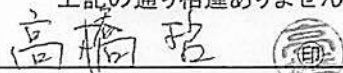 上記の通り相違ありません
高橋
印